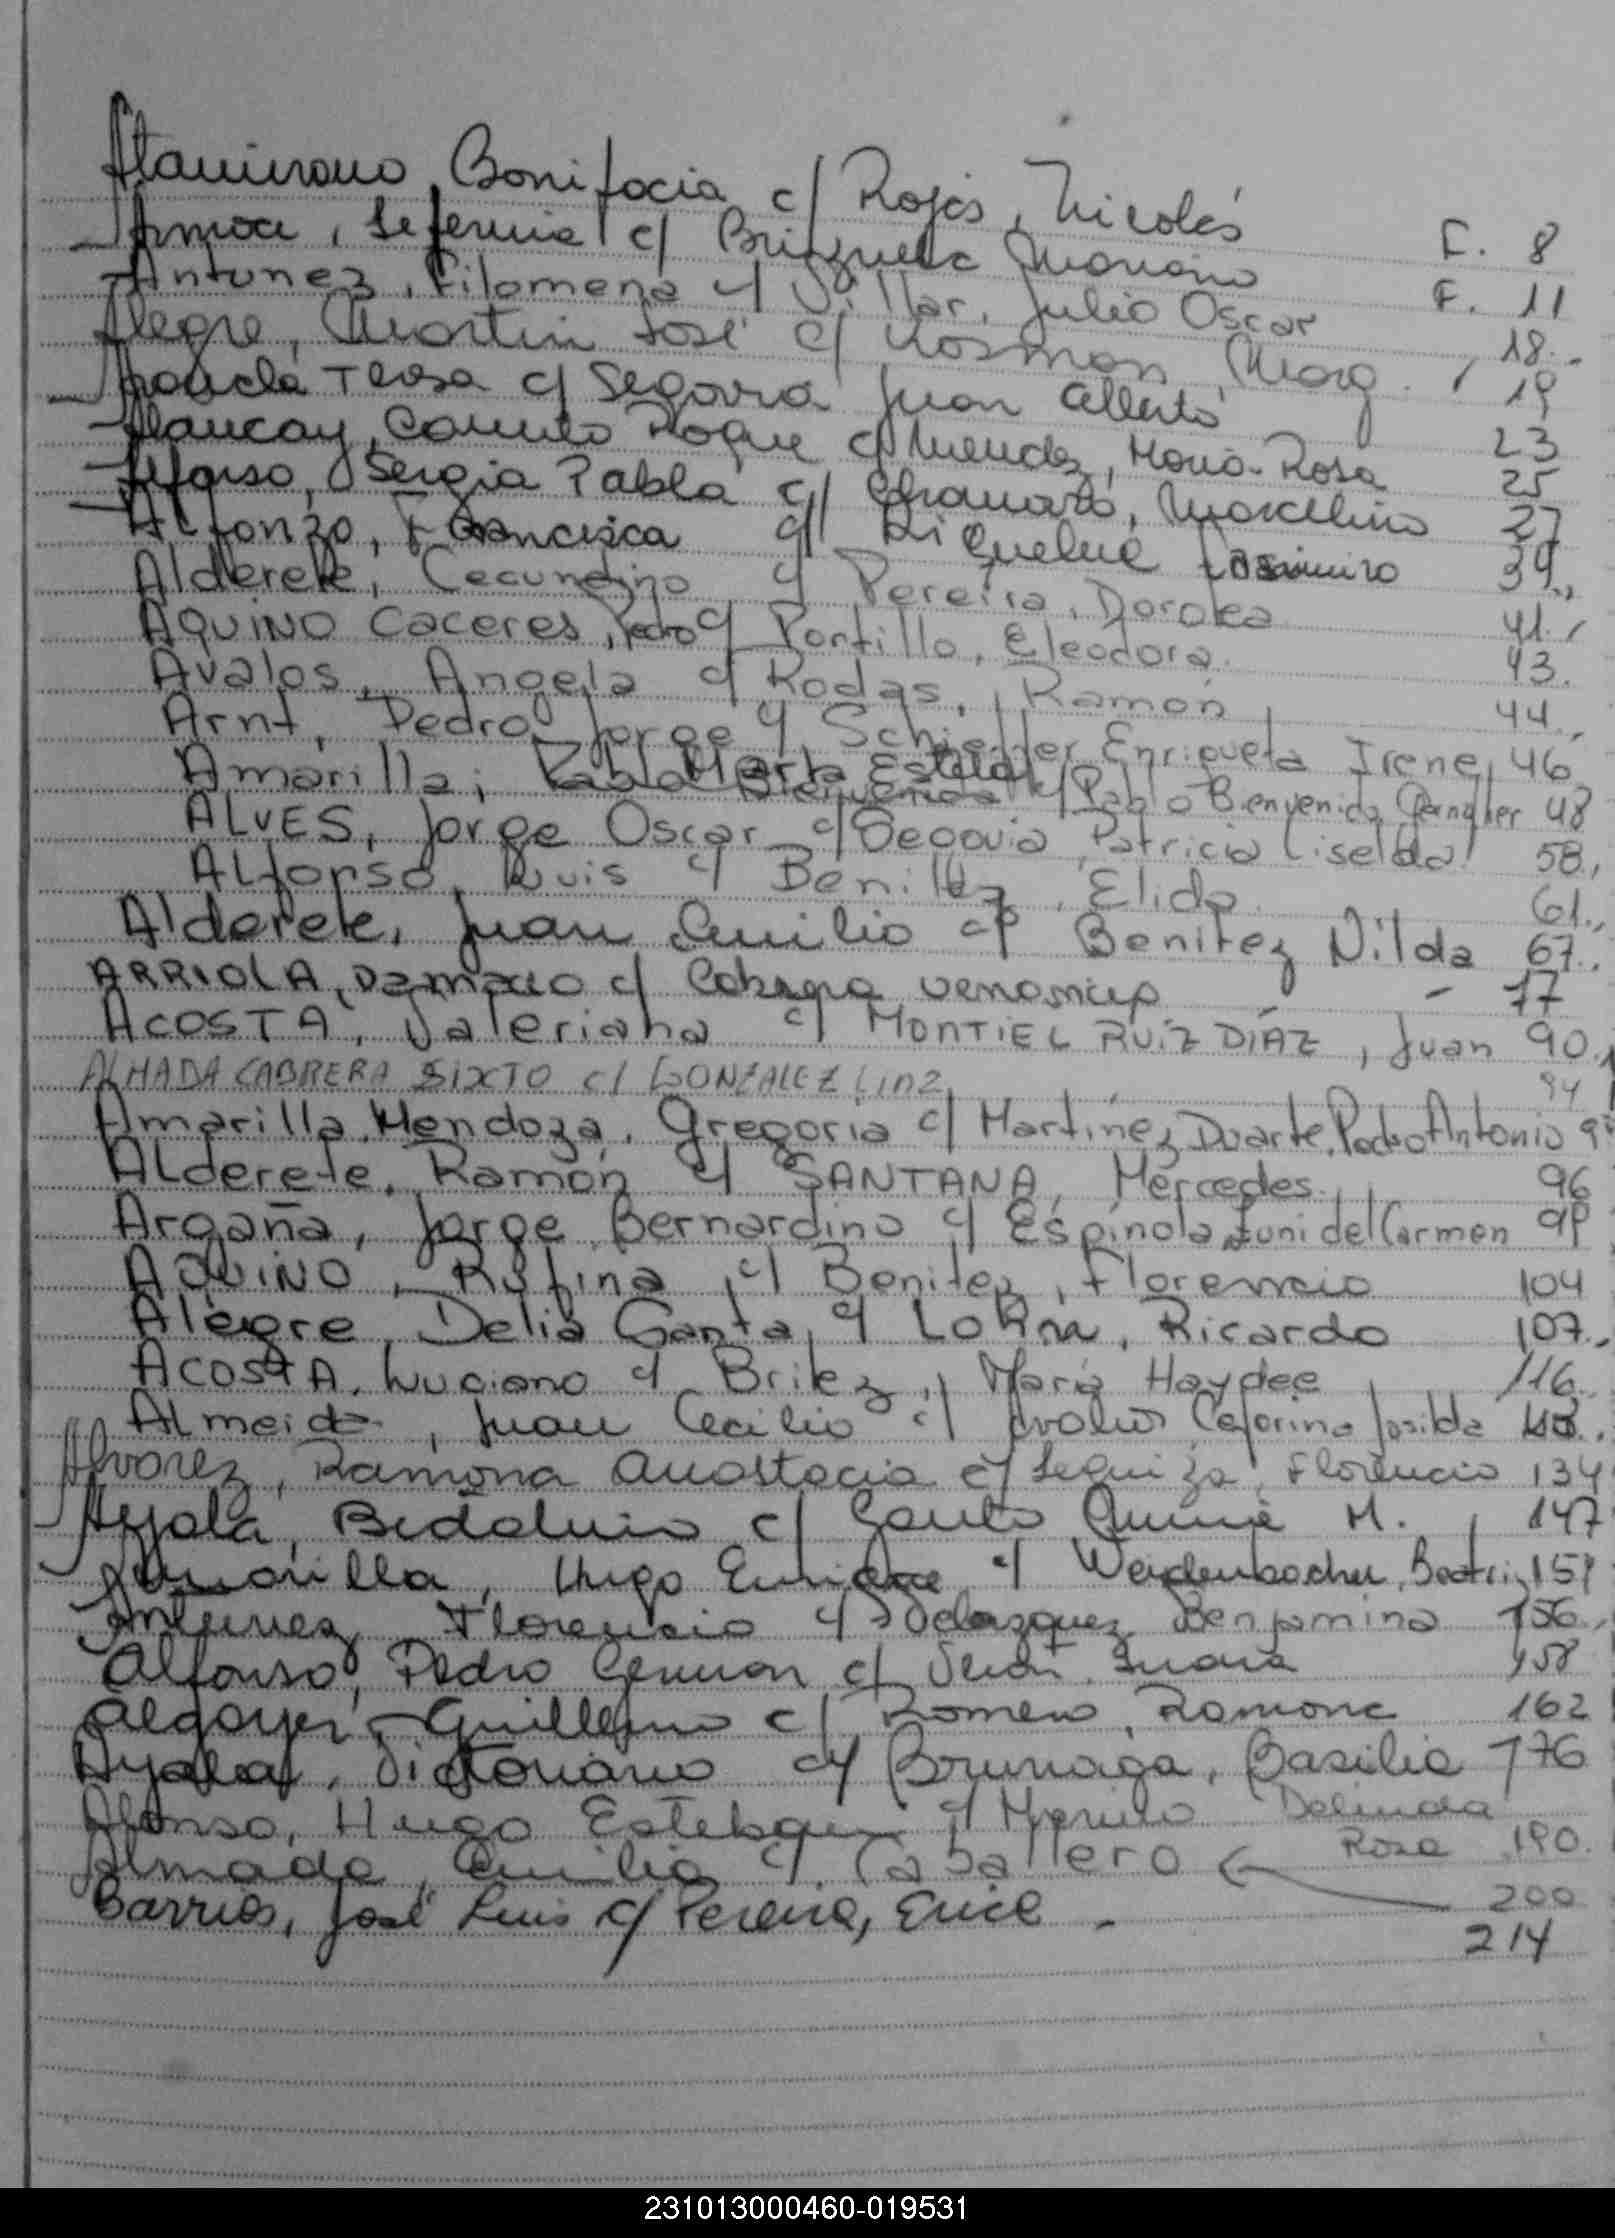 Altamirano, Bonifacia c/ Rojas, Nicolás F. 8
c/ Brizuela Mariano F. 11
Antunez, Filomena c/ Villar, Julio Oscar 18.-
Alegre, Martin José c/ Kosman, Marg. 19
Teresa c/ Segovia Juan Alberto 23
Camilo Roque c/ Mendez, Maria Rosa 25
Alfonso, Sergia Pabla c/ Marcelino 27
Alfonzo, Francisca c/ Riquelme Casimiro 39.,
Alderete, Cecundino c/ Pereira, Dorotea 41.,
AQUINO CACERES, Pedro c/ Portillo, Eleodora. 43.
Avalos, Angela c/ Rodas, Ramón 44.,
Arnt, Pedro Jorge c/ Scheffer Enriqueta Irene, 46
Amarilla, Marta Estela c/ Pablo Bienvenido 48
ALVES, Jorge Oscar c/ Segovia Patricia Liselda 58.,
Alfonso, Luis c/ Benitez, Elida. 61.,
Alderete, Juan Emilio c/ Benitez Nilda 67.,
ARRIOLA, Damacio c/ - 77
ACOSTA, Valeriana c/ MONTIEL RUIZ DÍAZ, Juan 90.,
ALMADA CABRERA SIXTO c/ GONZALEZ Lina 94
Amarilla Mendoza, Gregoria c/ Martínez Duarte, Pedro Antonio
Alderete, Ramón c/ SANTANA, Mercedes. 96
Argaña, Jorge Bernardino c/ Espínola, Zuni del Carmen 98
AQUINO, Rufina c/ Benitez, Florencio 104
Alegre, Delia Santa, c/ Ricardo 107.,
ACOSTA, Luciano c/ Britez, María Haydee 116.,
Almeida, Juan Cecilio c/ Avalos Ceferina Josilda
Alvarez, Ramona Anastacia c/ Leguiza, Florencio 134
Ayala, c/ M. 147
Amarilla, Hugo Enrique c/ Weidenbacher, Beatriz 151
Antunez Florencio c/ Velazquez Benjamina 156.,
Alfonso, Pedro German c/ Verón, 158
Guillermo c/ Romero, Ramona 162
Ayala, Victoriano c/ Brunaga, Basilia 176
Alonso, Hugo Esteban c/ Merelo Delinda
Rosa 190.
Almada, Emilia c/ Caballero 200
Barrios, José Luis c/ Pereira, Erice - 214
231013000460-019531